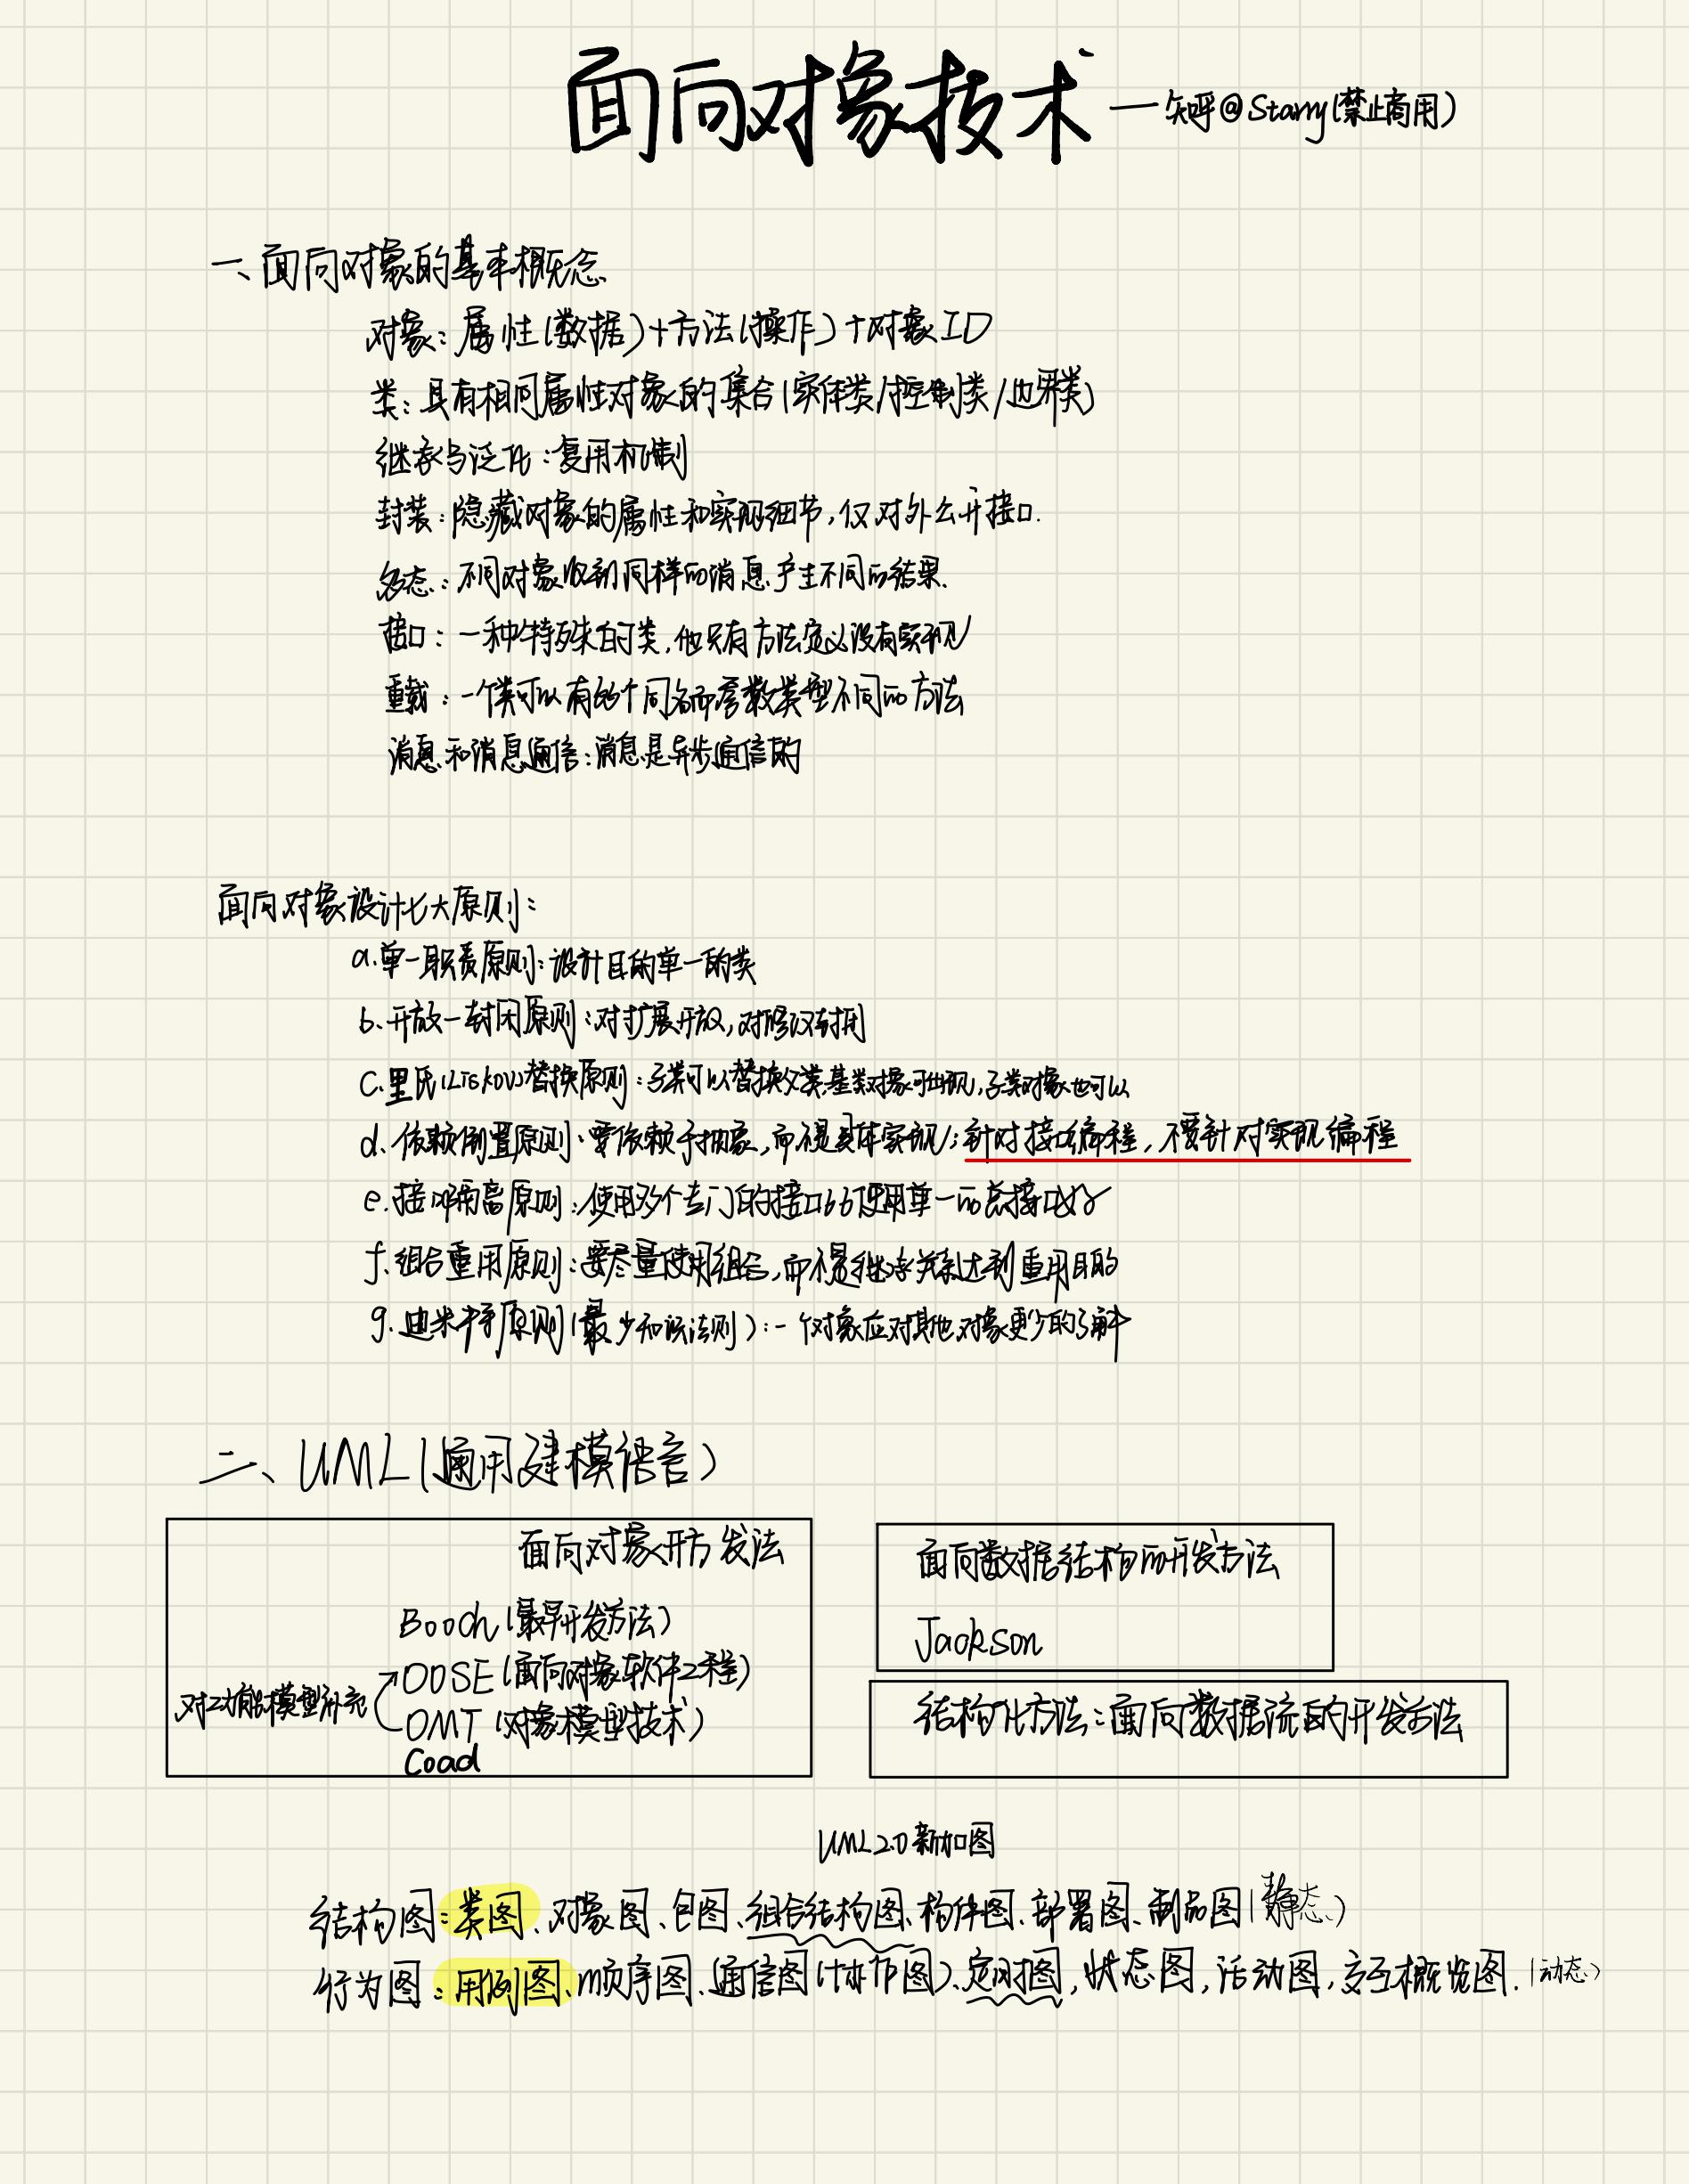 面向对象技术 —知乎@Starry(禁止商用)
一、面向对象的基本概念
对象：属性(数据)+方法(操作)+对象ID
类：具有相同属性对象的集合(实体类/控制类/边界类)
继承与泛化：复用机制
封装：隐藏对象的属性和实现细节，仅对外公开接口.
多态：不同对象收到同样的消息产生不同的结果.
接口：一种特殊的类，他只有方法定义没有实现
重载：一个类可以有多个同名而参数类型不同的方法
消息和消息通信：消息是异步通信的
面向对象设计七大原则：
a.单一职责原则：设计目的单一的类
b.开放-封闭原则：对扩展开放，对修改封闭
c.里氏(Liskov)替换原则：子类可以替换父类,基类对象可出现，子类对象也可以
d.依赖倒置原则：要依赖于抽象，而不是具体实现；针对接口编程，不要针对实现编程
e.接口隔离原则：使用多个专门的接口比使用单一的总接口好
f.组合重用原则：要尽量使用组合，而不是继承关系达到重用目的
g.迪米特原则(最少知识法则)：一个对象应对其他对象更少的了解
二、UML(通用建模语言)
面向对象开方发法
Booch(最早开发方法)
OOSE(面向对象软件工程)
对功能模型补充
OMT(对象模型技术)
Coad
面向数据结构的开发方法
Jackson
结构化方法：面向数据流的开发方法
UML2.0新加图
结构图：类图、对象图、包图、组合结构图、构件图、部署图、制品图(静态)
行为图：用例图、顺序图、通信图(协作图)、定时图，状态图，活动图，交互概览图.(动态)